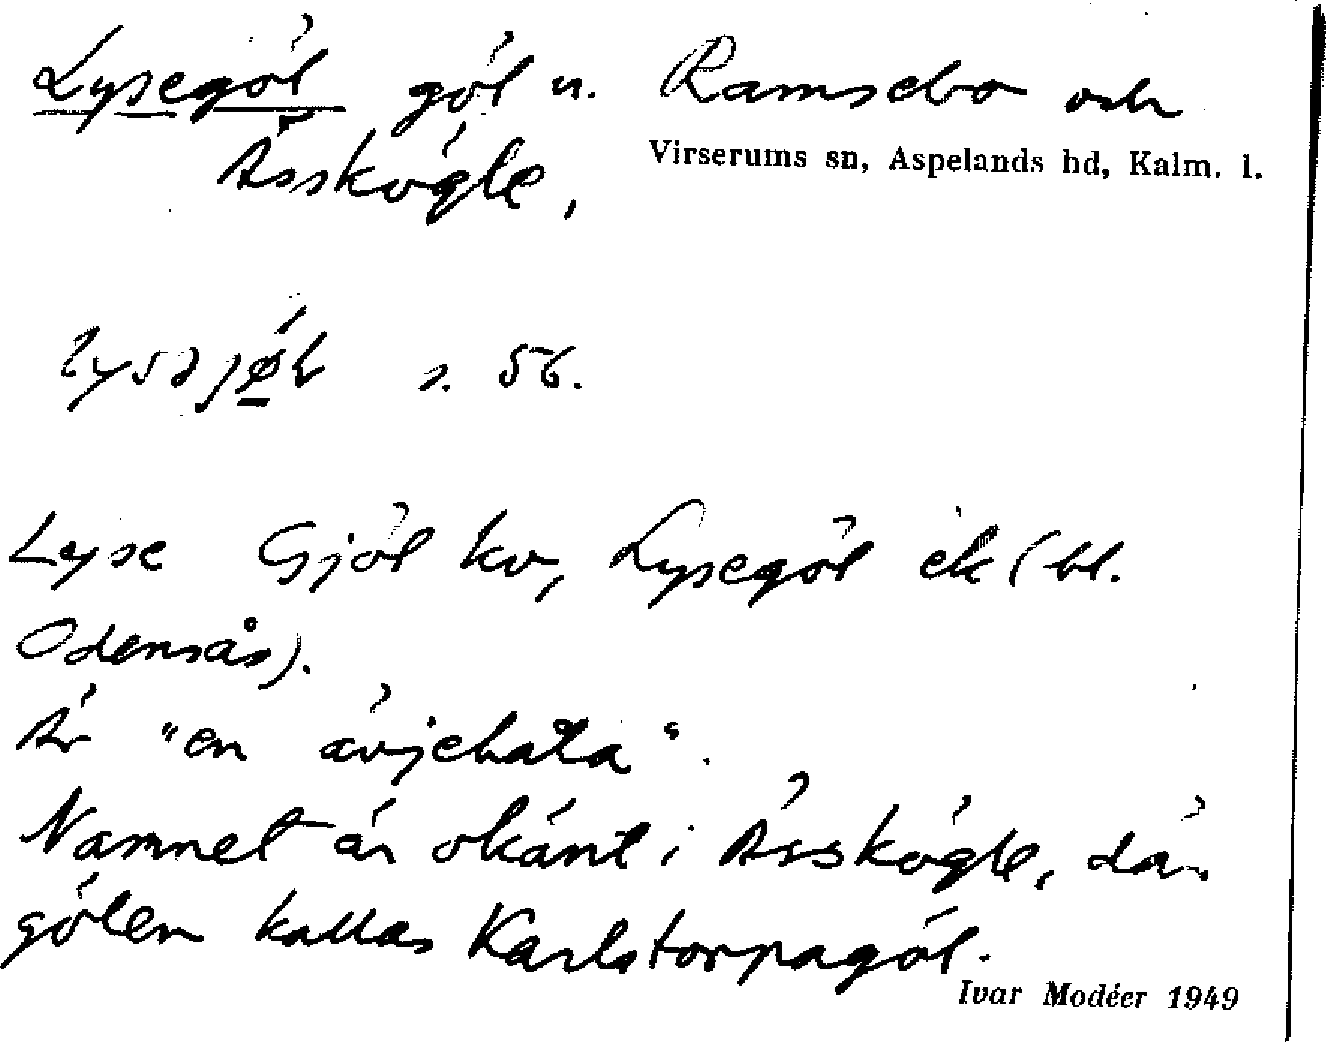 Lysegöl göl n. Ramsebo och
Ässkögle,
Virserums sn, Aspelands hd, Kalm. l.
s. 56.
Lyse Gjöl kv, Lysegöl ek (bl.
Odensås).
Är "en ävjehåla".
Namnet är okänt i Ässkögle, där
gölen kallas Karlstorpagöl.
Ivar Modéer 1949